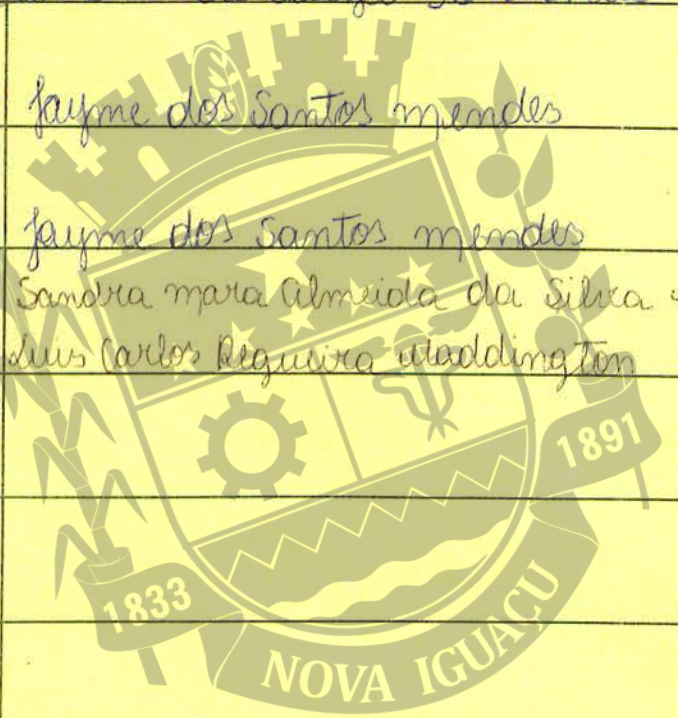 Jayme dos Santos mendes
Jayme dos Santos mendes
Sandra mara Almeida da Silva
Luis Carlos Regueira Waddington
1891
1833
NOVA IGUAÇU